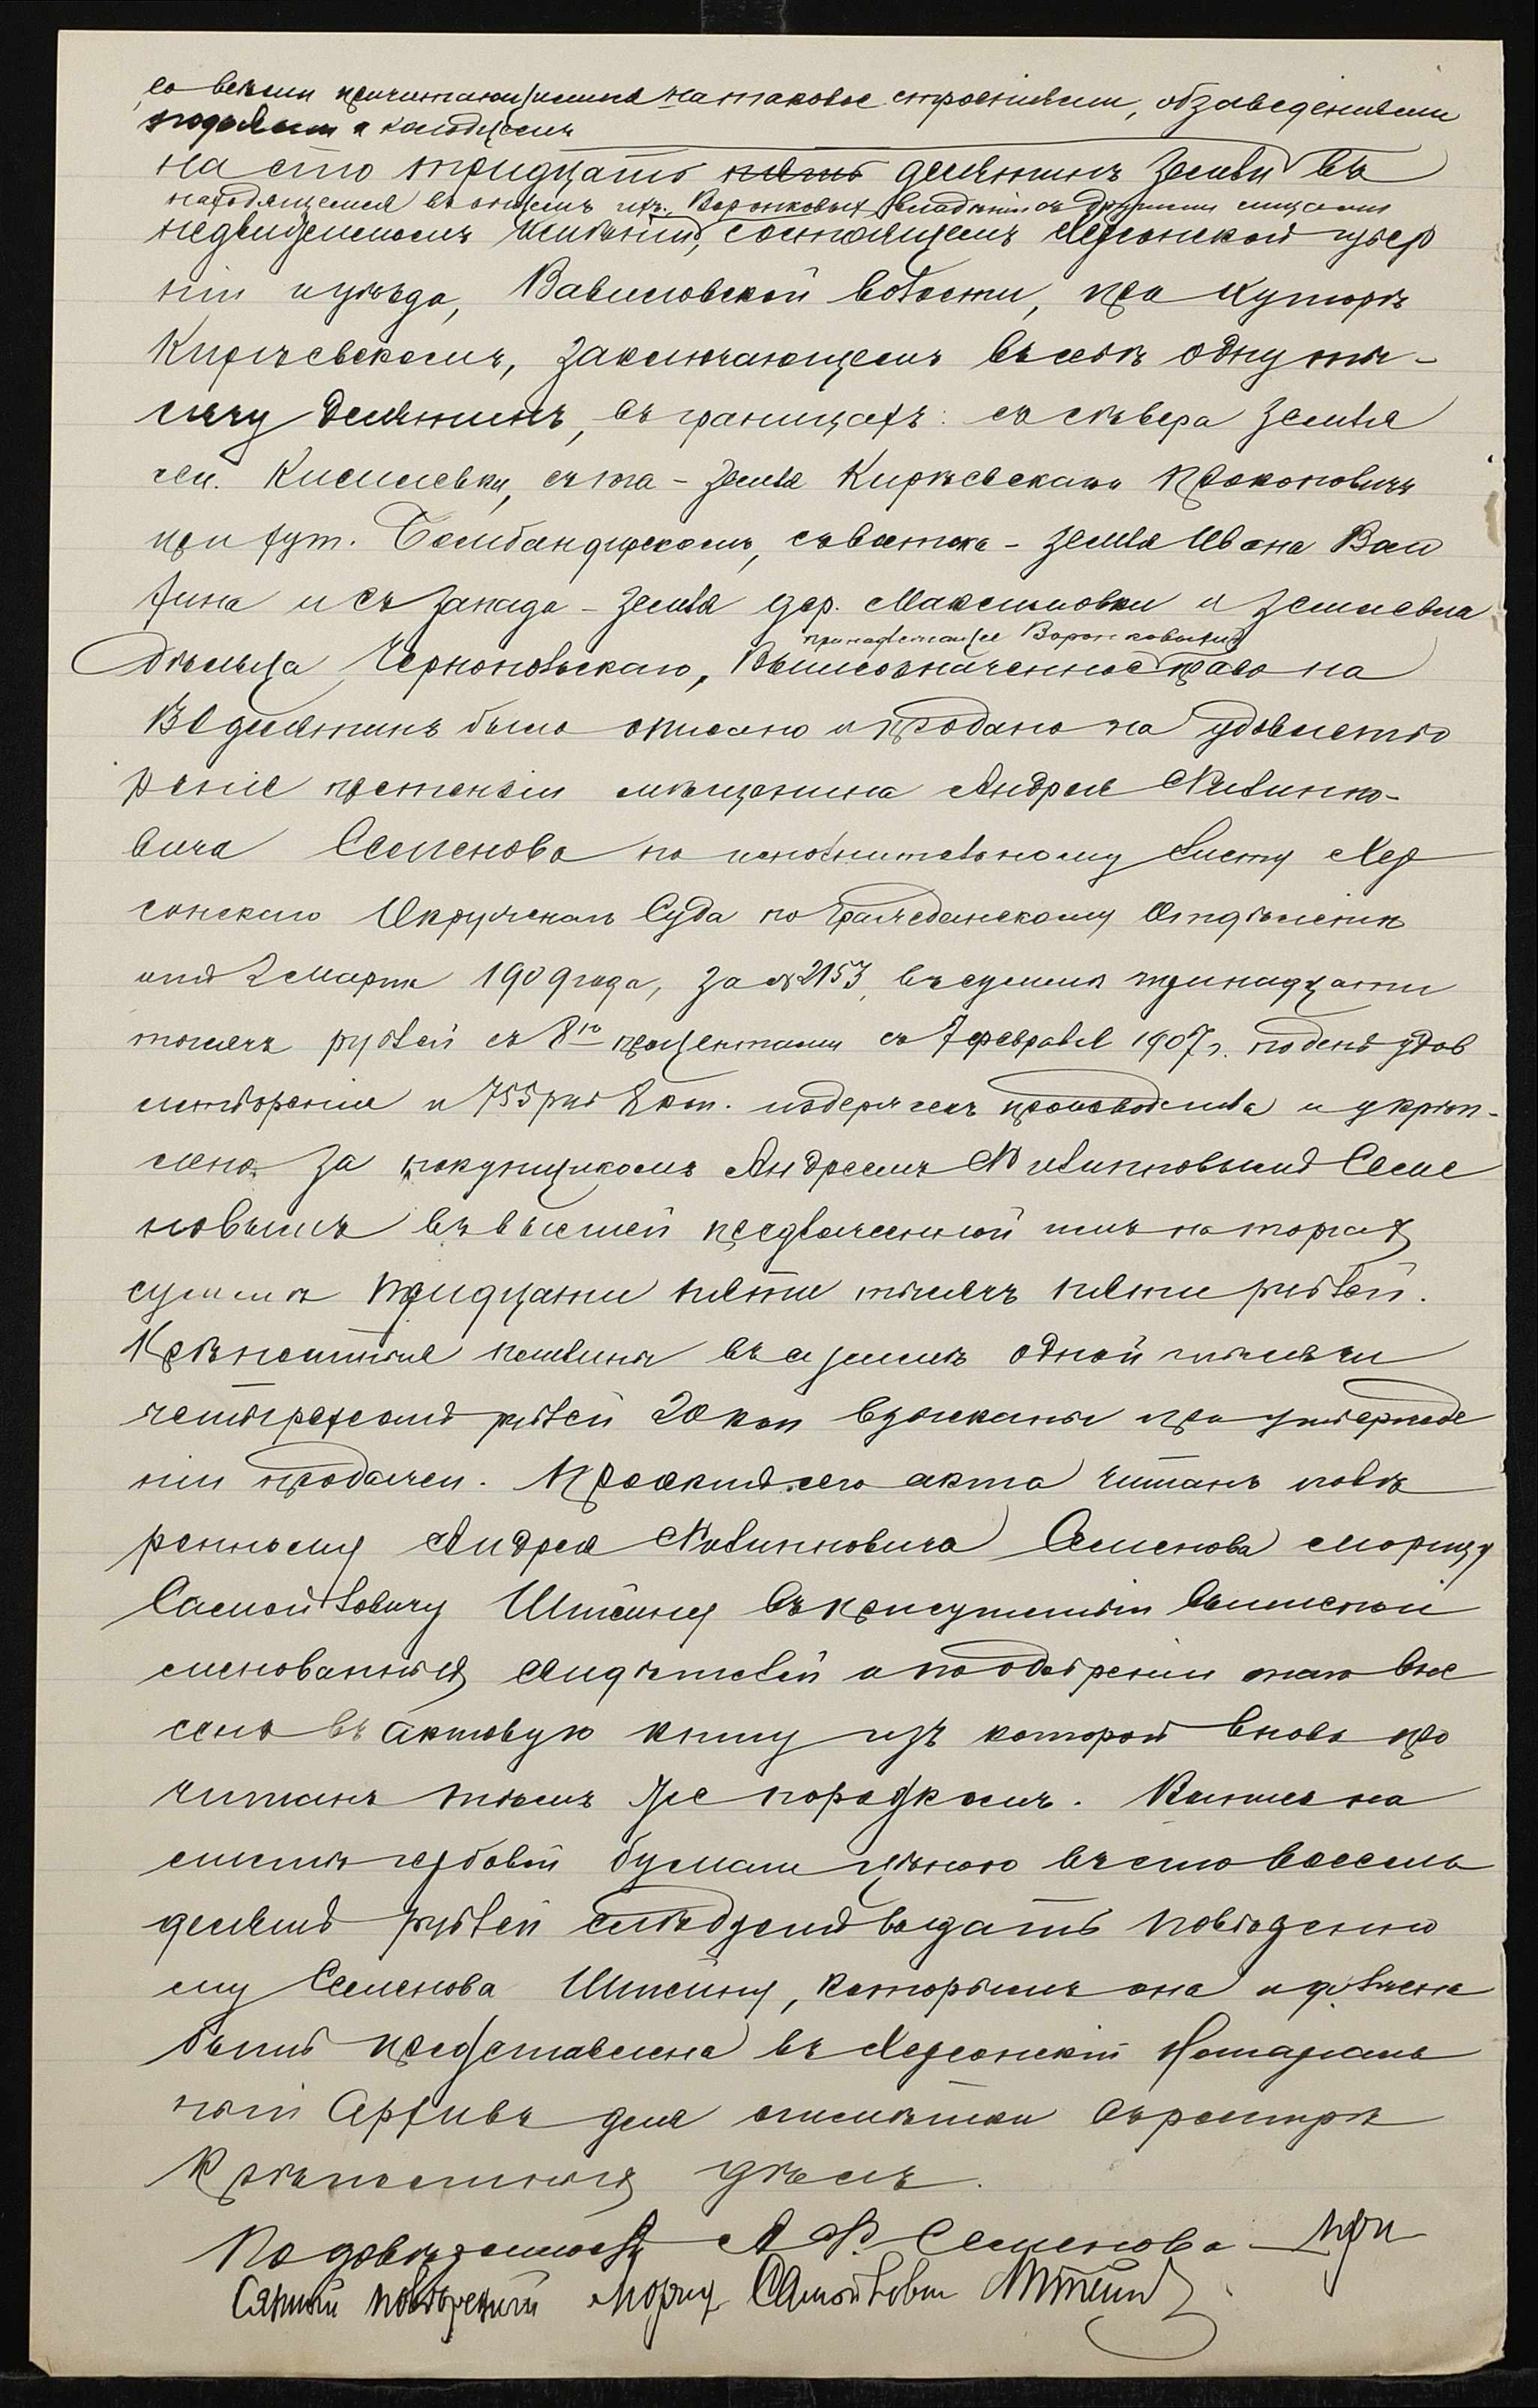 со всѣми причитающимися на таковое строеніями, обзаведеніями
и колодцемъ
на сто тридцать пять десятинъ земли въ
находящемся въ общемъ ихъ Воронковыхъ владѣніи съ другими лицами
недвижимомъ имѣніи, состоящемъ Херсонской губер
ніи и уѣзда, Вавиловской волости, при хуторѣ
Кирѣевскомъ, заключающемъ въ себѣ одну ты-
сячу десятинъ, въ границахъ: съ сѣвера земля
сел. Киселевки, съ юга - земля Кирѣевскаго Прокоповичъ
при хут. , съ востока - земля Ивана Вол
хина и съ запада - земля дер. Максимовки и землевла
дѣльца Чернопольскаго, Вышеозначенное право на
принадлежащее Воронковымъ
130 десятинъ было описано и продано на удовлетво
реніе претензіи мѣщанина Андрея Филиппо-
вича Семенова по исполнительному листу Хер
сонскаго Окружнаго Суда по Гражданскому Отдѣленію
отъ 2 Марта 1909 года, за № 2153, въ суммѣ тринадцати
тысячъ рублей съ 8% процентами съ 7 февраля 1907 г. по день удов
летворенія и 755 руб 2 коп. издержекъ производства и укрѣп-
лено за покупщикомъ Андреемъ Филипповымъ Семе
новымъ въ высшей предложенной имъ на торгахъ
суммѣ тридцати пяти тысячъ пяти рублей.
Крѣпостныя пошлины въ суммѣ одной тысячи
четырехсотъ рублей 20 коп взысканы при утвержде
ніи продажи. Проектъ сего акта читанъ повѣ
ренному Андрея Филипповича Семенова Морицу
Самойловичу Штейну въ присутствіи вышепои
менованныхъ свидѣтелей и по одобреніи того вне
сенъ въ актовую книгу изъ которой вновь про
читанъ тѣмъ же порядкомъ. Выпись на
листѣ гербовой бумаги цѣною въ сто восемь
десятъ рублей слѣдуетъ выдать повѣренно
му Семенова Штейну, которымъ она и должна
быть представлена въ Херсонскій Нотаріаль
ный Архивъ для отмѣтки въ реестрѣ
Крѣпостныхъ дѣлъ.
По довѣренности А. Ф. Семенова при
сяжный повѣренный Морицъ Самойловичъ Штейнъ